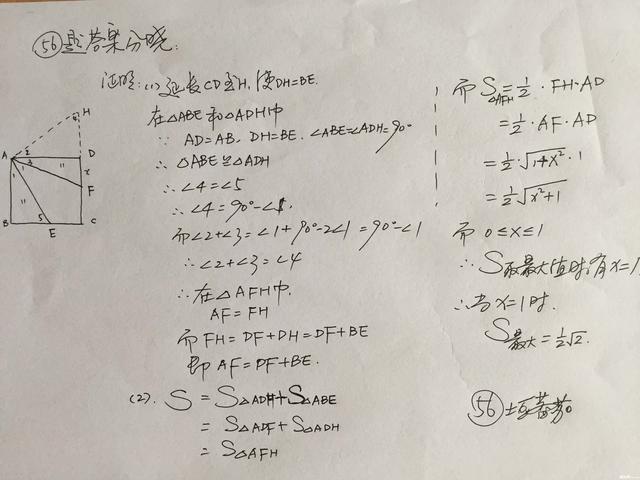 56题答案分晓:
证明:(1) 延长CD至H, 使DH=BE.
在△ABE和△ADH中
∵ AD=AB, DH=BE. ∠ABE=∠ADH=90°
∴ △ABE≌△ADH
∴ ∠4=∠5
∴ ∠4=90°-∠1.
而∠2+∠3=∠1+90°-2∠1=90°-∠1
∴ ∠2+∠3=∠4
∴ 在△AFH中,
AF=FH
而FH=DF+DH=DF+BE
即AF=DF+BE.
(2). S=S△ADF+S△ABE
=S△ADF+S△ADH
=S△AFH
而S△AFH=½·FH·AD
=½·AF·AD
=½·√1+x²·1
=½√x²+1
而 0≤x≤1
∴ S取最大值时,有x=1
∴当x=1时.
S最大=½√2.
56
H
A
2
3
1
D
x
F
B
5
E
C